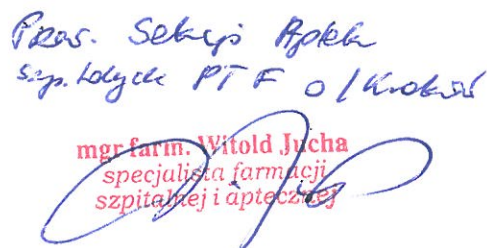 Przew. Sekcji Aptek
Szpitalnych PTF o/Kraków
mgr farm. Witold Jucha
specjalista farmacji
szpitalnej i aptecznej